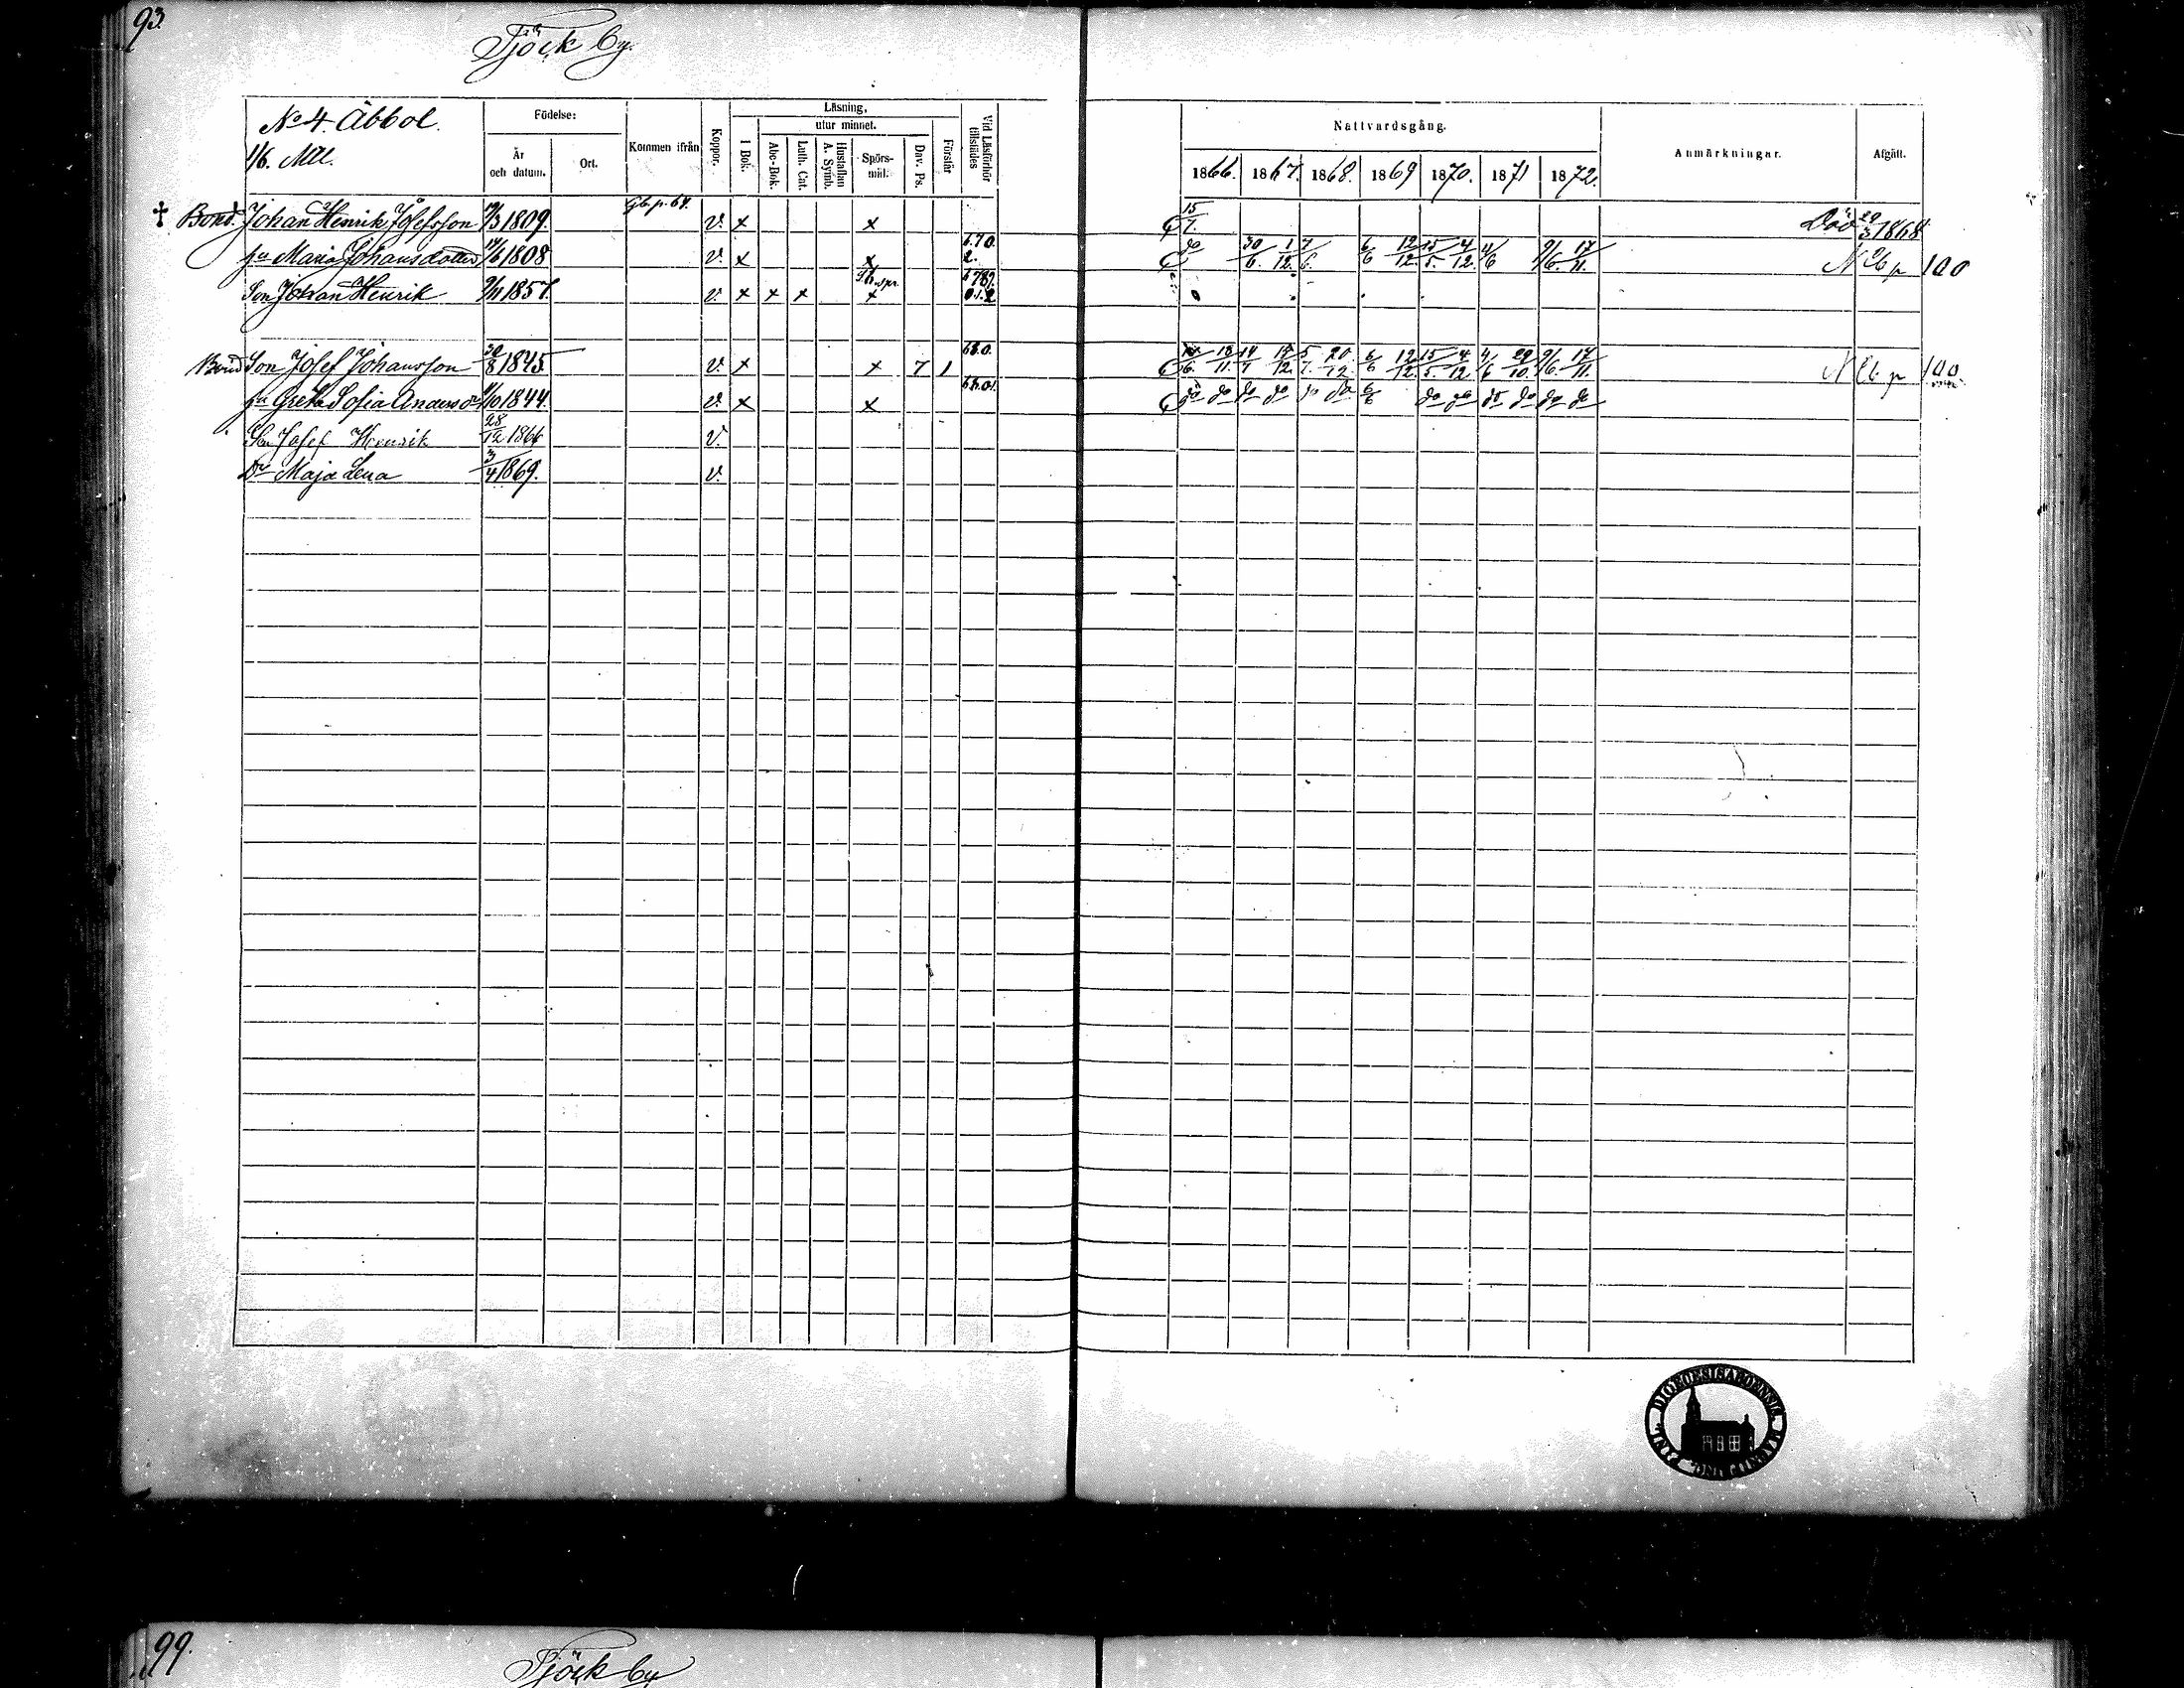 93.
Tjöck by.
No 4. Åbbol.
1/6. Mtl.
Födelse:
År och datum.
Ort.
Kommen ifrån
Koppor.
Läsning,
utur minnet.
I Bok.
Abc-Bok.
Luth. Cat.
Hustaflan A. Symb.
Spörsmål.
Dav. Ps.
Förstår
Vid Läsförhör tillstädes
Nattvardsgång.
1866. 1867. 1868. 1869 1870. 1871 1872.
Anmärkningar.
Afgått.
† Bond. Johan Henrik Josefsson /3 1809. Gb. p. 64. v. x x 15/7. Död 29/3 1868
hu Maria Johansdotter /6 1808 v. x x 670. 2. do 30/6. 1/12. 7/6. 6/6 12/12 15/5. 4/12. 11/6 9/6. 17/11. N Cb p 100
Son Johan Henrik 9/11 1857. v. x x x x 6789.
Bond Son Josef Johansson 30/8 1845 v. x x 7 1 680. 18/11. 14/7 15/12. 5/7. 20/12 6/6 12/12. 15/5. 4/12 4/6 29/10. 9/6. 17/11. N Cb. p 100
hu Greta Sofia Andersdr /10 1844. v. x x do do do do do do 6/6 do do do do do do
Son Josef Henrik 28/12 1866 v.
Dr Maja Lena 3/4 1869. v.
99.
Tjöck by